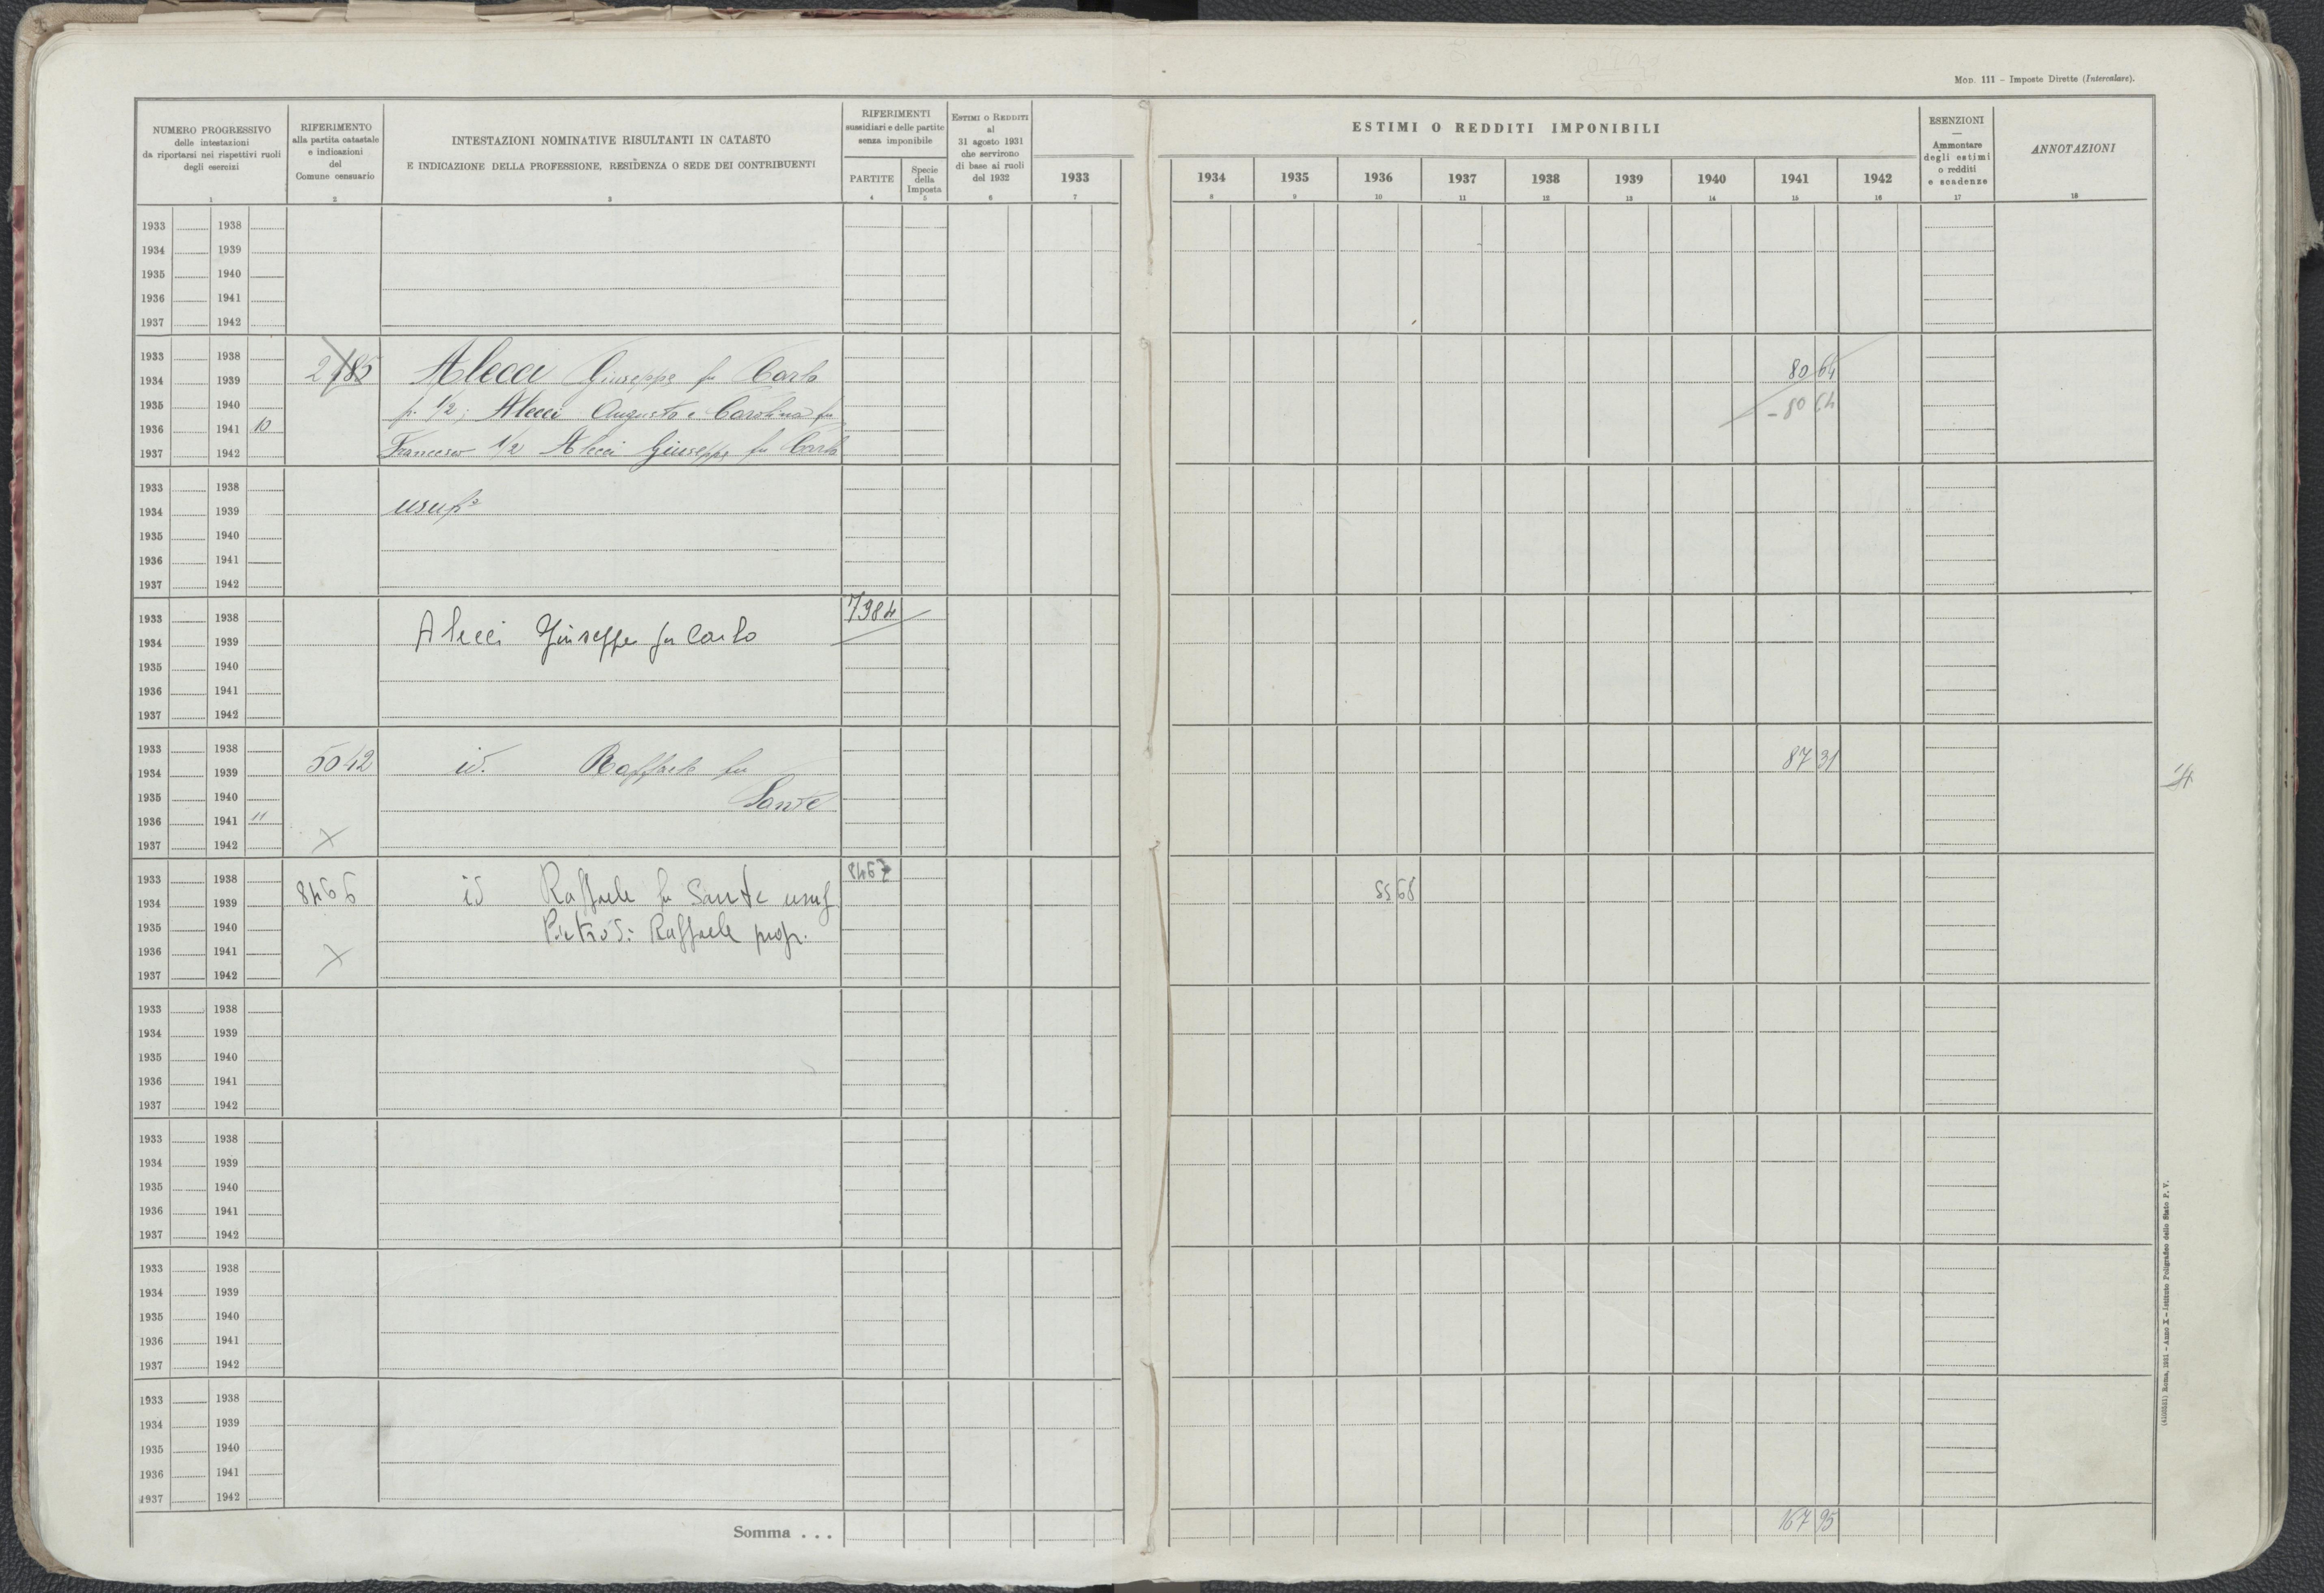 Mod. 111 - Imposte Dirette (Intercalare).
NUMERO PROGRESSIVO
delle intestazioni
da riportarsi nei rispettivi ruoli
degli esercizi
1
RIFERIMENTO
alla partita catastale
e indicazioni
del
Comune censuario
2
INTESTAZIONI NOMINATIVE RISULTANTI IN CATASTO
E INDICAZIONE DELLA PROFESSIONE, RESIDENZA O SEDE DEI CONTRIBUENTI
3
RIFERIMENTI
sussidiari e delle partite
senza imponibile
PARTITE
4
Specie
della
Imposta
5
Estimi o Redditi
al
31 agosto 1931
che servirono
di base ai ruoli
del 1932
6
ESTIMI O REDDITI IMPONIBILI
1933 1934 1935 1936 1937 1938 1939 1940 1941 1942
7 8 9 10 11 12 13 14 15 16
ESENZIONI
—
Ammontare
degli estimi
o redditi
e scadenze
17
ANNOTAZIONI
18
1933 1938
1934 1939
1935 1940
1936 1941
1937 1942
1933 1938
1934 1939 2785 Alecci Giuseppe fu Carlo 80 64
1935 1940 p. 1/2; Alecci Augusto e Carolina fu - 80 64
1936 1941 10
1937 1942 Francesco 1/2 Alecci Giuseppe fu Carlo
1933 1938
1934 1939
1935 1940
1936 1941
1937 1942
1933 1938 7984
1934 1939 Alecci Giuseppe fu Carlo
1935 1940
1936 1941
1937 1942
1933 1938
1934 1939 5042 id. Raffaele fu 87 31
1935 1940 Sante
1936 1941 11
1937 1942 X
1933 1938 8467
1934 1939 8466 id Raffaele fu Sante usuf. 55 68
1935 1940 Pietro di Raffaele propr.
1936 1941 X
1937 1942
1933 1938
1934 1939
1935 1940
1936 1941
1937 1942
1933 1938
1934 1939
1935 1940
1936 1941
1937 1942
1933 1938
1934 1939
1935 1940
1936 1941
1937 1942
1933 1938
1934 1939
1935 1940
1936 1941
1937 1942
Somma . . . 167 95
(4100551) Roma, 1931 - Anno X - Istituto Poligrafico dello Stato P. V.